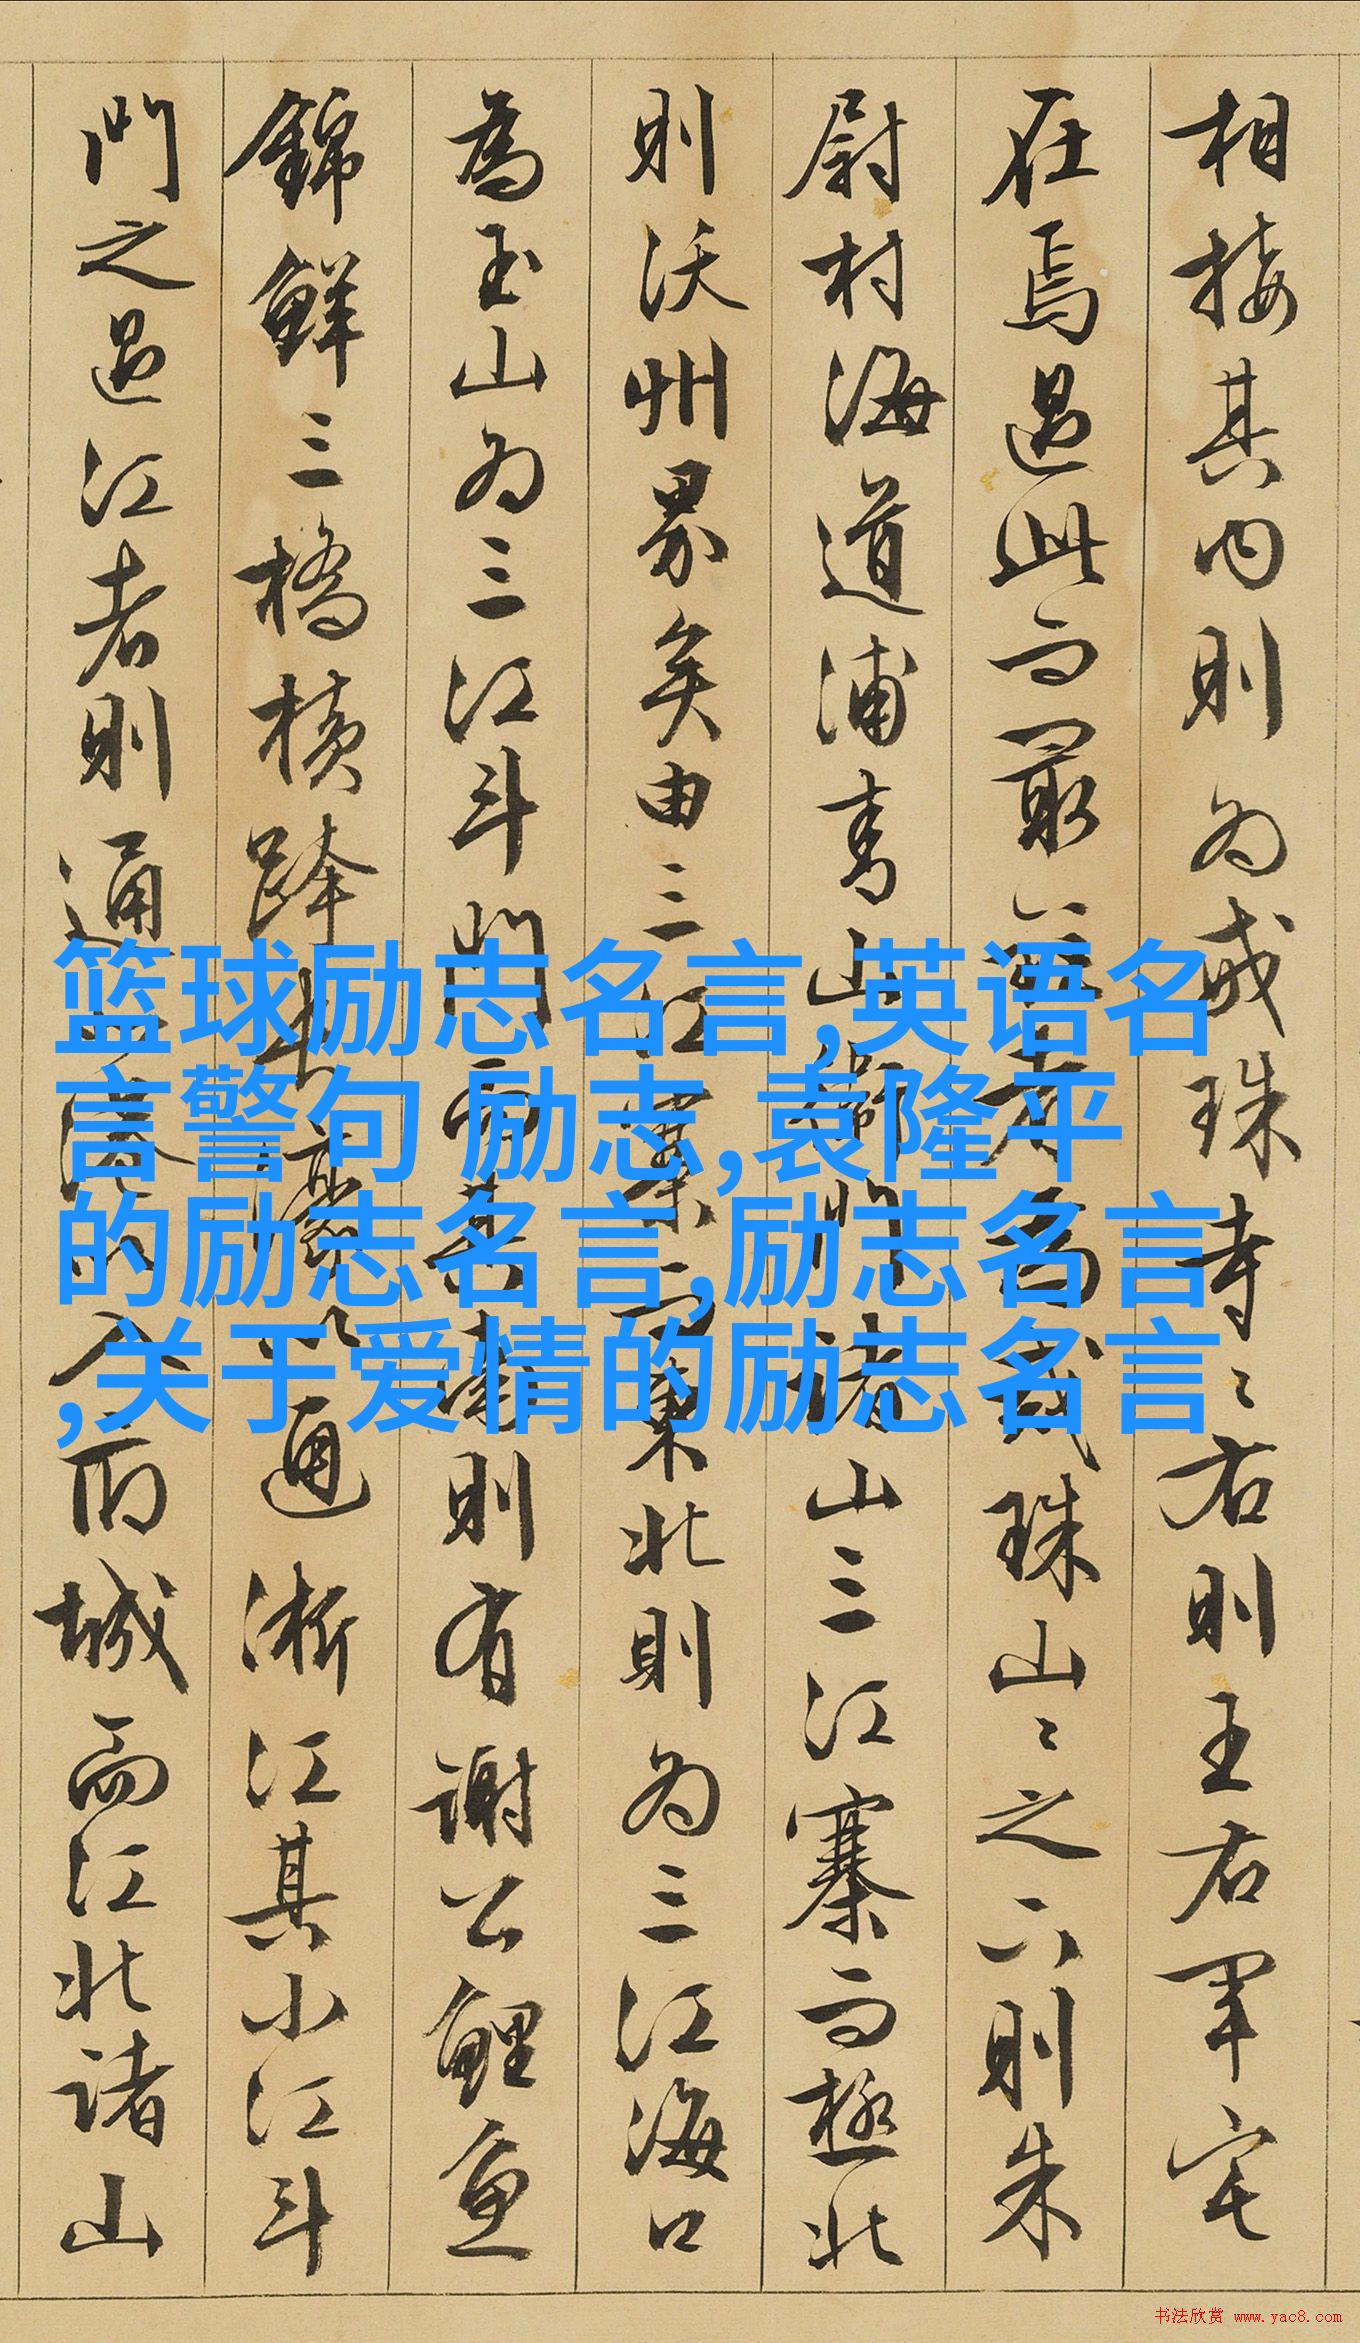 相接其内則为戒珠寺〻右則王右军宅
在焉過此而最
珠山〻之六則朱
尉村海道浦青山
諸山三江寨而极北
則沃州界矣由三江
東北則为三江海口
為玉山为三江斗門
則有谢公鲤鱼
錦鮮三橋横跨
通浙江其小江斗
門之過江者則通
入雨城而江北诸山
篮球励志名言,英语名
言警句 励志,袁隆平
的励志名言,励志名言
,关于爱情的励志名言
书法欣赏 www.yac8.com